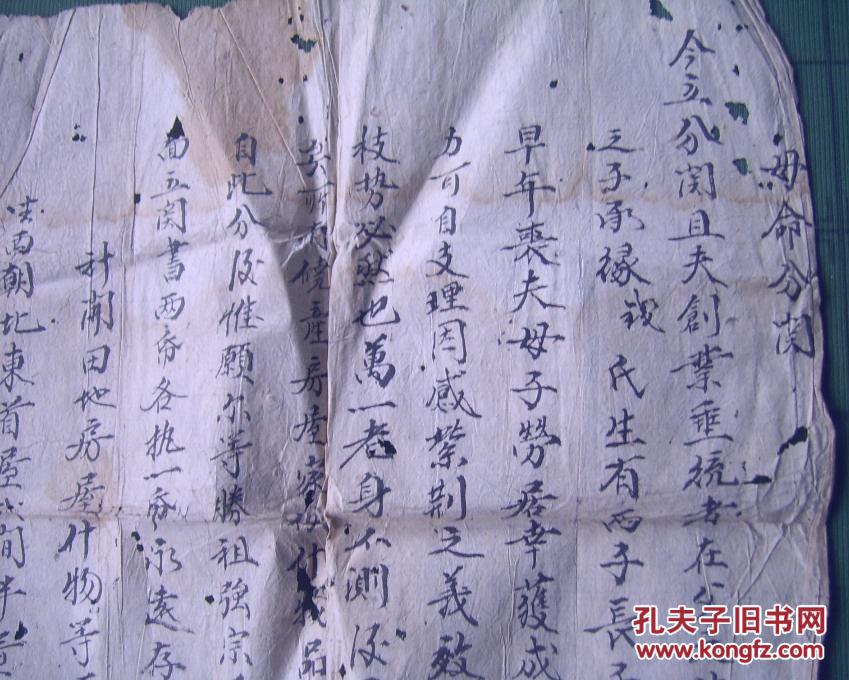 母命分関
今立分関且夫創業垂統者在
之子承緣我 氏生有両子長子
早年喪夫母子勞居幸獲成
力可自支理因感紫荆之義效
枝势必然也萬一老身不測後
矣所有 產房屋家 什 品
自此分後惟願尔等勝祖強宗
面立関書両帋各执一帋永遠存
計開田地房屋什物等
朝北東首屋 間半
孔夫子旧书网
www.kongfz.com